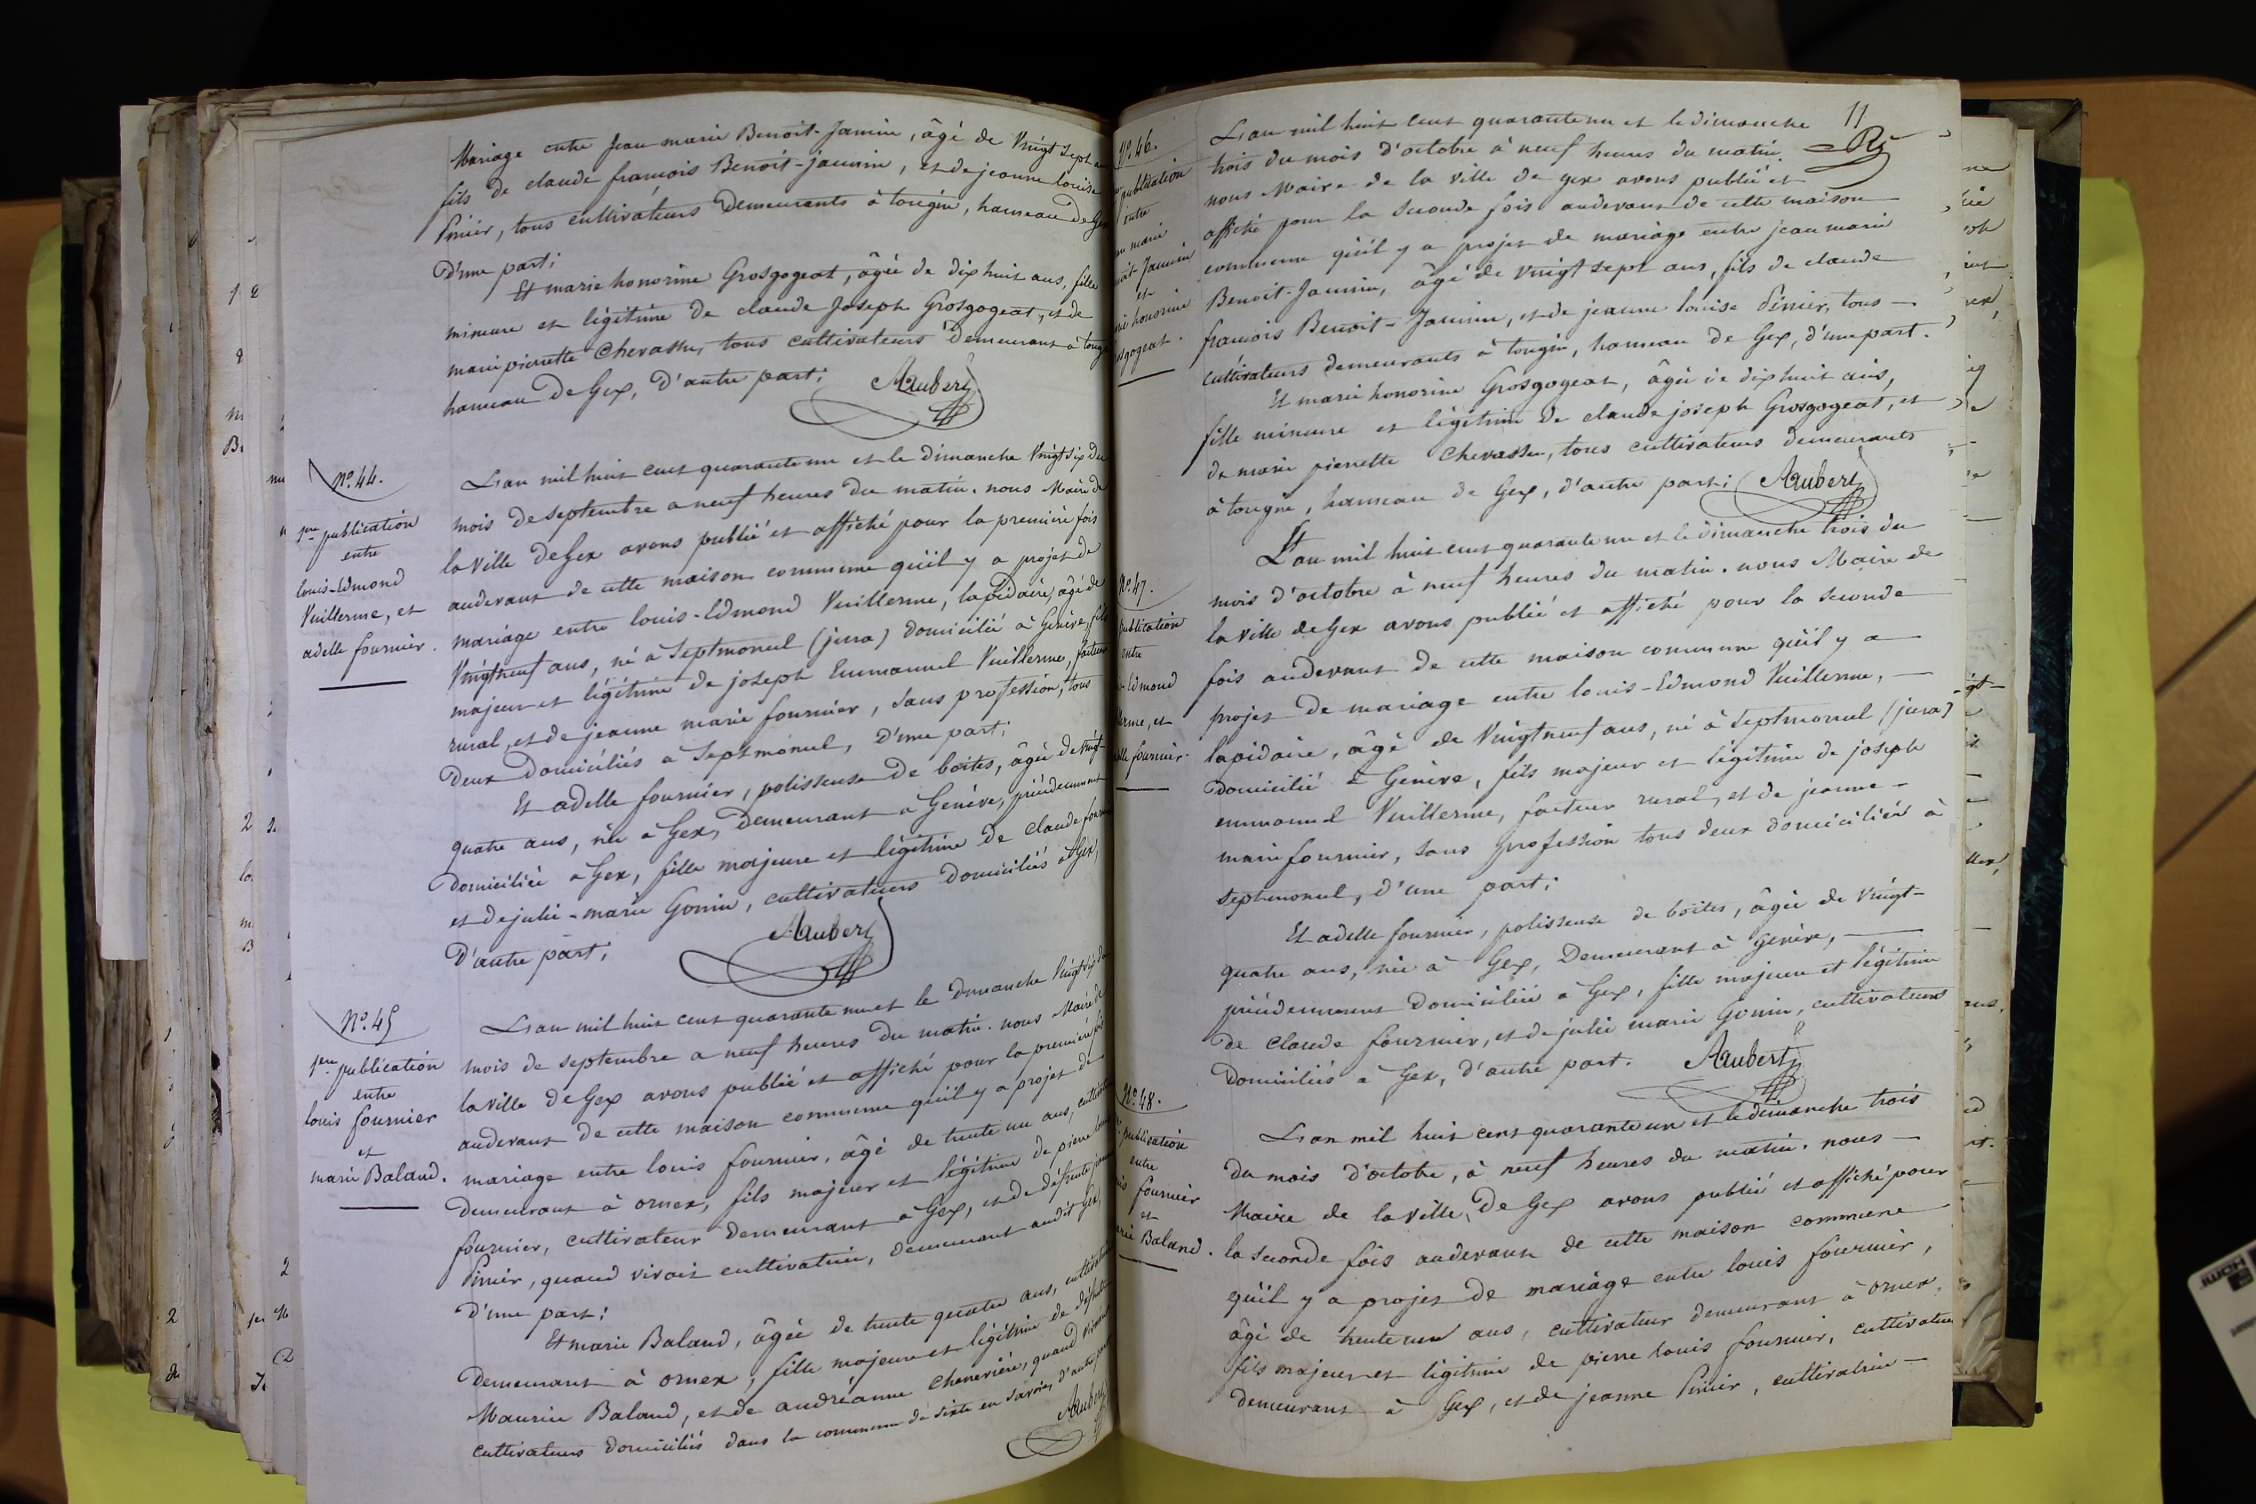 Mariage entre jean marie Benoit-Jannin, âgé de vingt sept
fils de claude françois Benoit-jannin, et de jeanne louise
Pinier, tous cultivateurs demeurants à tougin, hameau de Gex
d'une part;
Et marie honorine Grosgogeat, âgée de dix huit ans, fille
mineure et légitime de claude Joseph Grosgogeat, et de
marie pierrette Chevassu, tous cultivateurs demeurant à
hameau de Gex, d'autre part;
Aubert
N°. 44.
1ere publication
entre
louis-Edmond
Vuillerme, et
adelle fournier.
L'an mil huit cent quarante un et le dimanche vingt six du
mois de septembre a neuf heures du matin. nous Maire de
la ville de Gex avons publié et affiché pour la première fois
audevant de cette maison commune qu'il y a projet de
mariage entre louis-Edmond Vuillerme, lapidaire, âgé de
vingt neuf ans, né à Septmoncel (jura) domicilié à Genève, fils
majeur et légitime de joseph Emmanuel Vuillerme, facteur
rural, et de jeanne marie fournier, sans profession, tous
deux domiciliés à Septmoncel, d'une part;
Et adelle fournier, polisseuse de boites, âgée de vingt-
quatre ans, née a Gex, demeurant a Genève, précédemment
domiciliée a Gex, fille majeure et légitime de Claude
et de julie-marie Gonin, cultivateurs domiciliés à Gex,
d'autre part;
Aubert
N°. 45
1ere publication
entre
louis fournier
et
marie Baland.
L'an mil huit cent quarante un et le dimanche vingt six du
mois de septembre a neuf heures du matin. nous Maire de
la ville de Gex avons publié et affiché pour la première fois
audevant de cette maison commune qu'il y a projet de
mariage entre louis fournier, âgé de trente un ans,
demeurant à ornex, fils majeur et légitime de pierre
fournier, cultivateur demeurant a Gex, et de défunte
Pinier, quand vivait cultivatrice, demeurant audit Gex,
d'une part;
Et marie Baland, âgée de trente quatre ans,
demeurant à ornex, fille majeure et légitime de
Maurice Baland, et de andréanne Chenevière, quand
cultivateurs domiciliés dans la commune de Sixte en Savoie, d'autre part
Aubert
11
N°. 46.
publication
entre
marie
Jannin
et
honorine
L'an mil huit cent quarante un et le dimanche
trois du mois d'octobre à neuf heures du matin.
nous Maire de la ville de gex avons publié et
affiché pour la seconde fois audevant de cette maison
commune qu'il y a projet de mariage entre jean marie
Benoit-Jannin, âgé de vingt sept ans, fils de claude
françois Benoit-Jannin, et de jeanne louise Pinier, tous
cultivateurs demeurants à tougin, hameau de Gex, d'une part.
Et marie honorine Grosgogeat, âgée de dix huit ans,
fille mineure et légitime de claude joseph Grosgogeat, et
de marie pierrette Chevassu, tous cultivateurs demeurants
à tougin, hameau de Gex, d'autre part;
Aubert
N°. 47.
publication
entre
Edmond
et
fournier.
L'an mil huit cent quarante un et le dimanche trois du
mois d'octobre à neuf heures du matin. nous Maire de
la ville de Gex avons publié et affiché pour la seconde
fois audevant de cette maison commune qu'il y a
projet de mariage entre louis-Edmond Vuillerme,
lapidaire, âgé de vingt neuf ans, né à Septmoncel (jura)
domicilié à Genève, fils majeur et légitime de joseph
emmanuel Vuillerme, facteur rural, et de jeanne-
marie fournier, sans profession tous deux domiciliés à
septmoncel, d'une part;
Et adelle fournier, polisseuse de boites, âgée de vingt-
quatre ans, née à Gex, demeurant à Genève,
précédemment domiciliée à Gex, fille majeure et légitime
de Claude fournier, et de julie marie Gonin, cultivateurs
domiciliés à Gex, d'autre part.
Aubert
N°. 48.
publication
entre
fournier
et
Baland.
L'an mil huit cent quarante un et le dimanche trois
du mois d'octobre, à neuf heures du matin. nous
Maire de la ville de Gex avons publié et affiché pour
la seconde fois audevant de cette maison commune
qu'il y a projet de mariage entre louis fournier,
âgé de trente un ans, cultivateur demeurant à ornex,
fils majeur et légitime de pierre louis fournier, cultivateur
demeurant à Gex, et de jeanne Pinier, cultivatrice